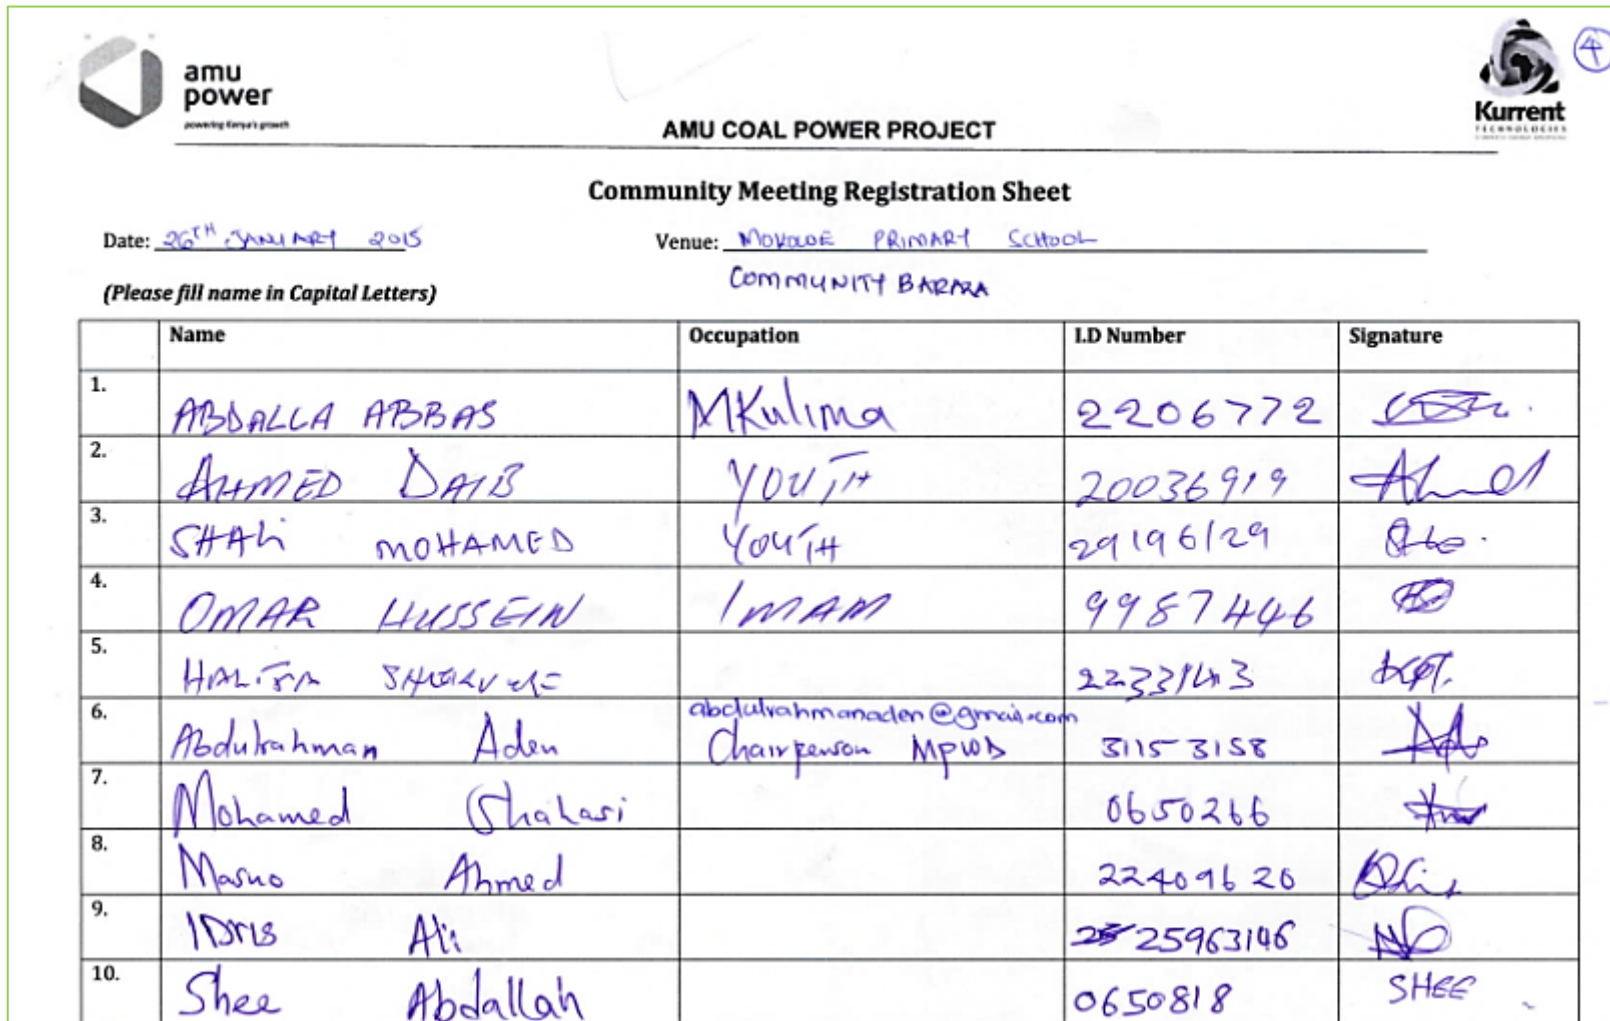 amu
power
powering Kenya's growth
Kurrent
TECHNOLOGIES
4
AMU COAL POWER PROJECT
Community Meeting Registration Sheet
Date: 26TH JANUARY 2015 Venue: MOKOWE PRIMARY SCHOOL
COMMUNITY BARAZA
(Please fill name in Capital Letters)
Name Occupation I.D Number Signature
1. ABDALLA ABBAS MKulima 2206772
2. AHMED DAIB YOUTH 20036919 Ahmed
3. SHALI MOHAMED YOUTH 29196129
4. OMAR HUSSEIN IMAM 9987446
5. 
6. Abdulrahman Aden abdulrahmanaden@gmail.com
Chairperson MPWD 3115 3158
7. Mohamed Shahasi 0650266
8. Masno Ahmed 22409620
9. IDris Ali 25963146
10. Shee Abdallah 0650818 SHEE